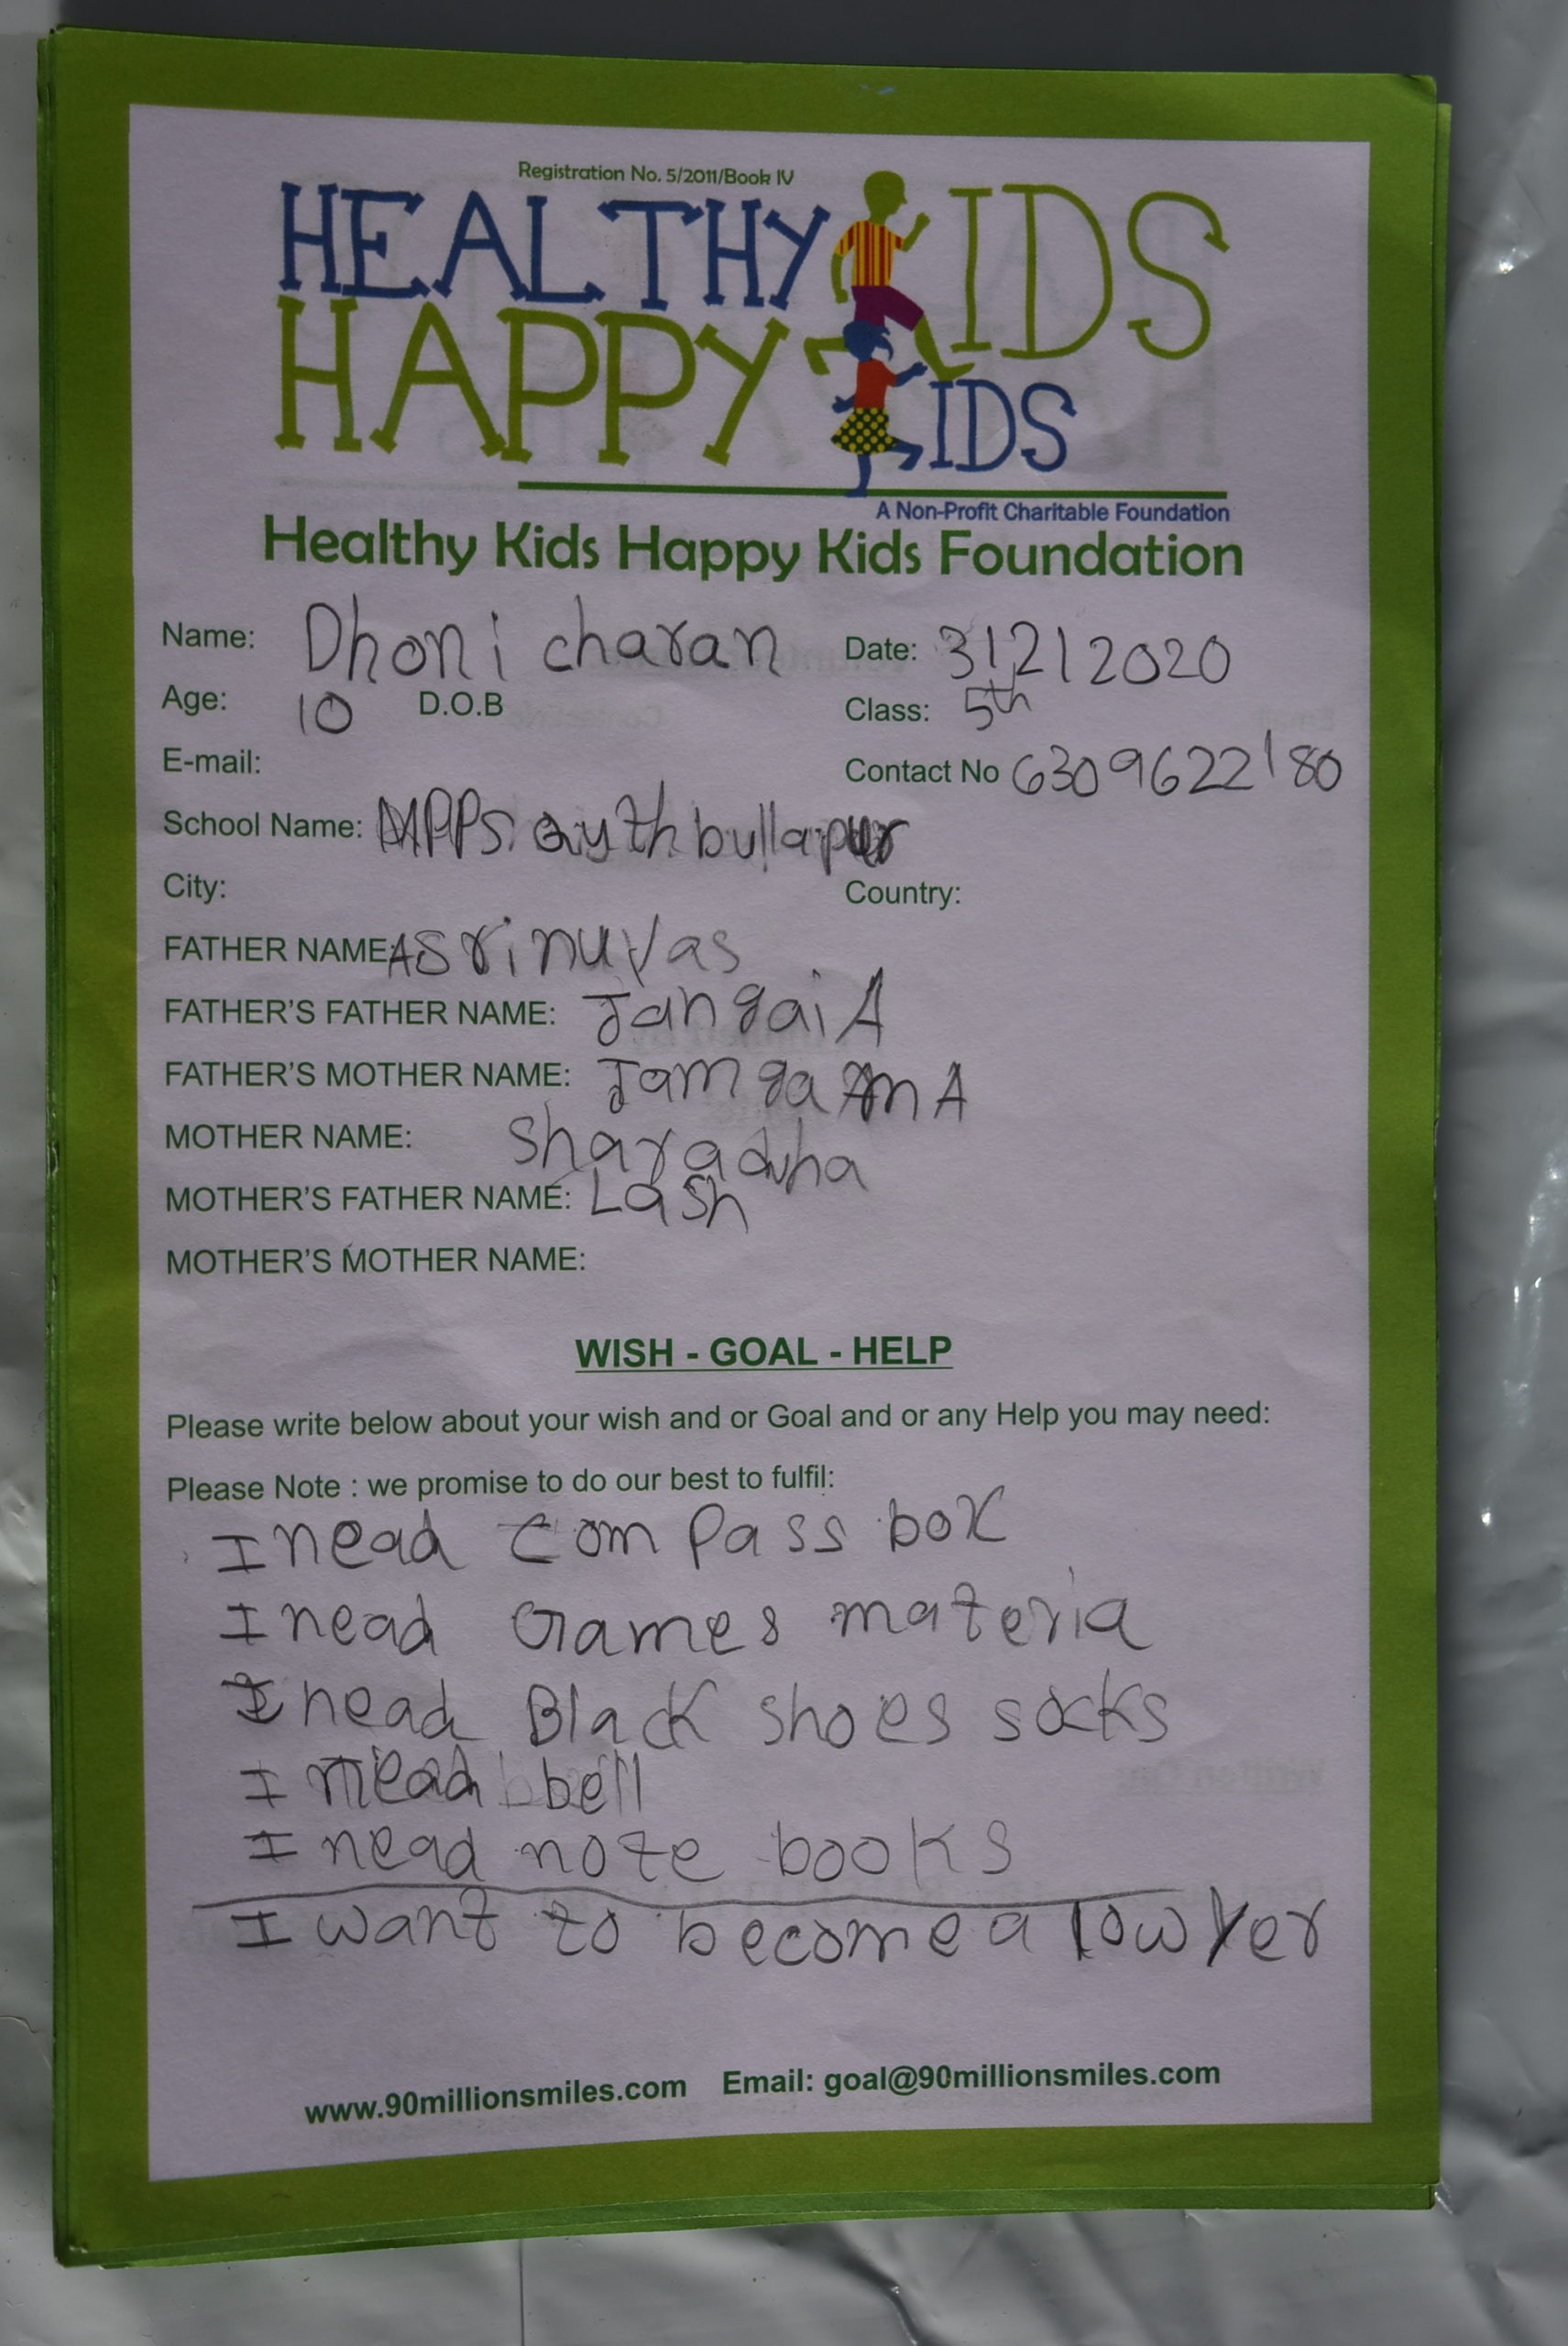 Registration No. 5/2011/Book IV
HEALTHY KIDS
HAPPY KIDS
A Non-Profit Charitable Foundation
Healthy Kids Happy Kids Foundation
Name: Dhoni charan Date: 31212020
Age: 10 D.O.B Class: 5th
E-mail: Contact No 6309622180
School Name: MPPS. ayth bullapur
City: Country:
FATHER NAME: A Srinuvas
FATHER'S FATHER NAME: JangaiA
FATHER'S MOTHER NAME: Jamga mA
MOTHER NAME: Sharadha
MOTHER'S FATHER NAME: Lash
MOTHER'S MOTHER NAME:
WISH - GOAL - HELP
Please write below about your wish and or Goal and or any Help you may need:
Please Note : we promise to do our best to fulfil:
I nead compass box
I nead Games materia
I nead Black shoes socks
I nead bell
I nead note books
I want to become a lowyer
www.90millionsmiles.com Email: goal@90millionsmiles.com